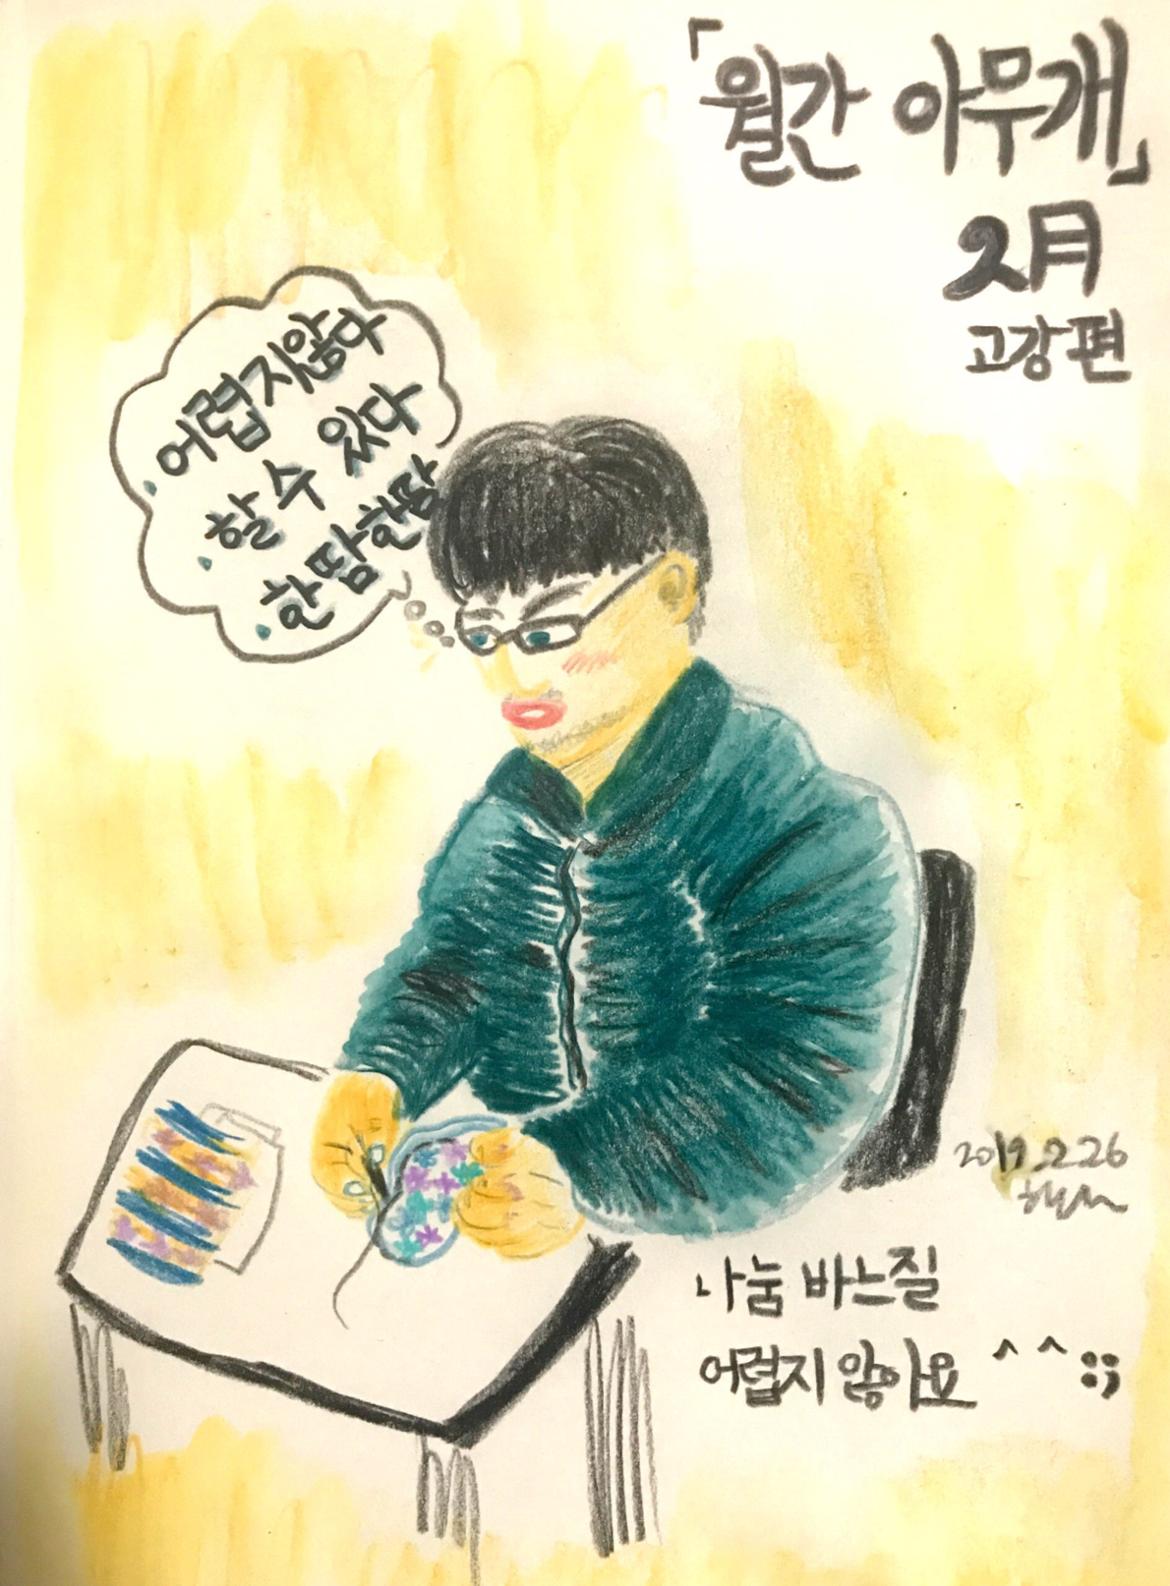 「월간 아무개」
2月
고강편
어렵지않다
할 수 있다
한땀한땀
2019.2.26
나눔 바느질
어렵지 않아요 ^ ^ ;;